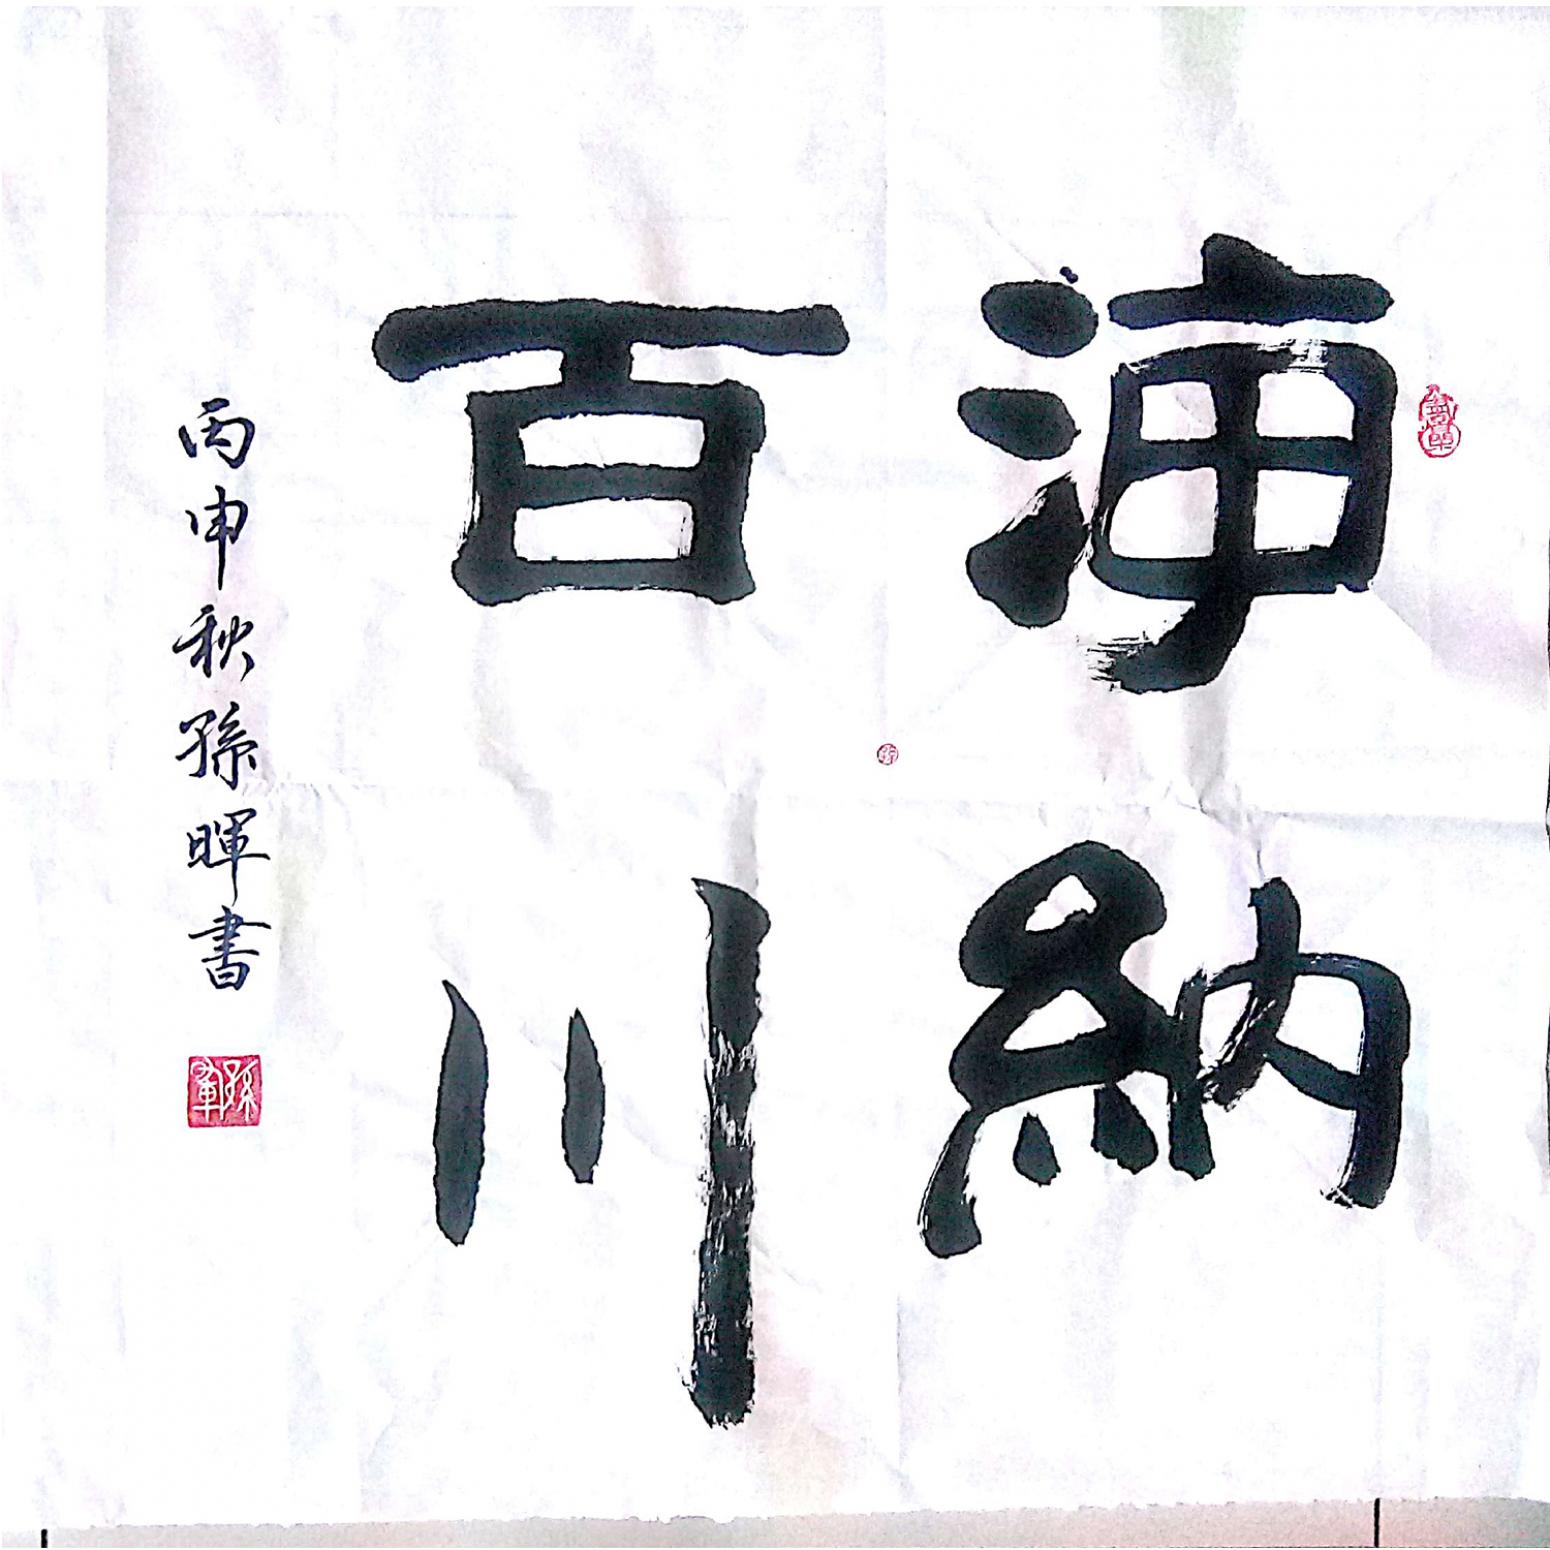 海納
百川
丙申秋孫暉書